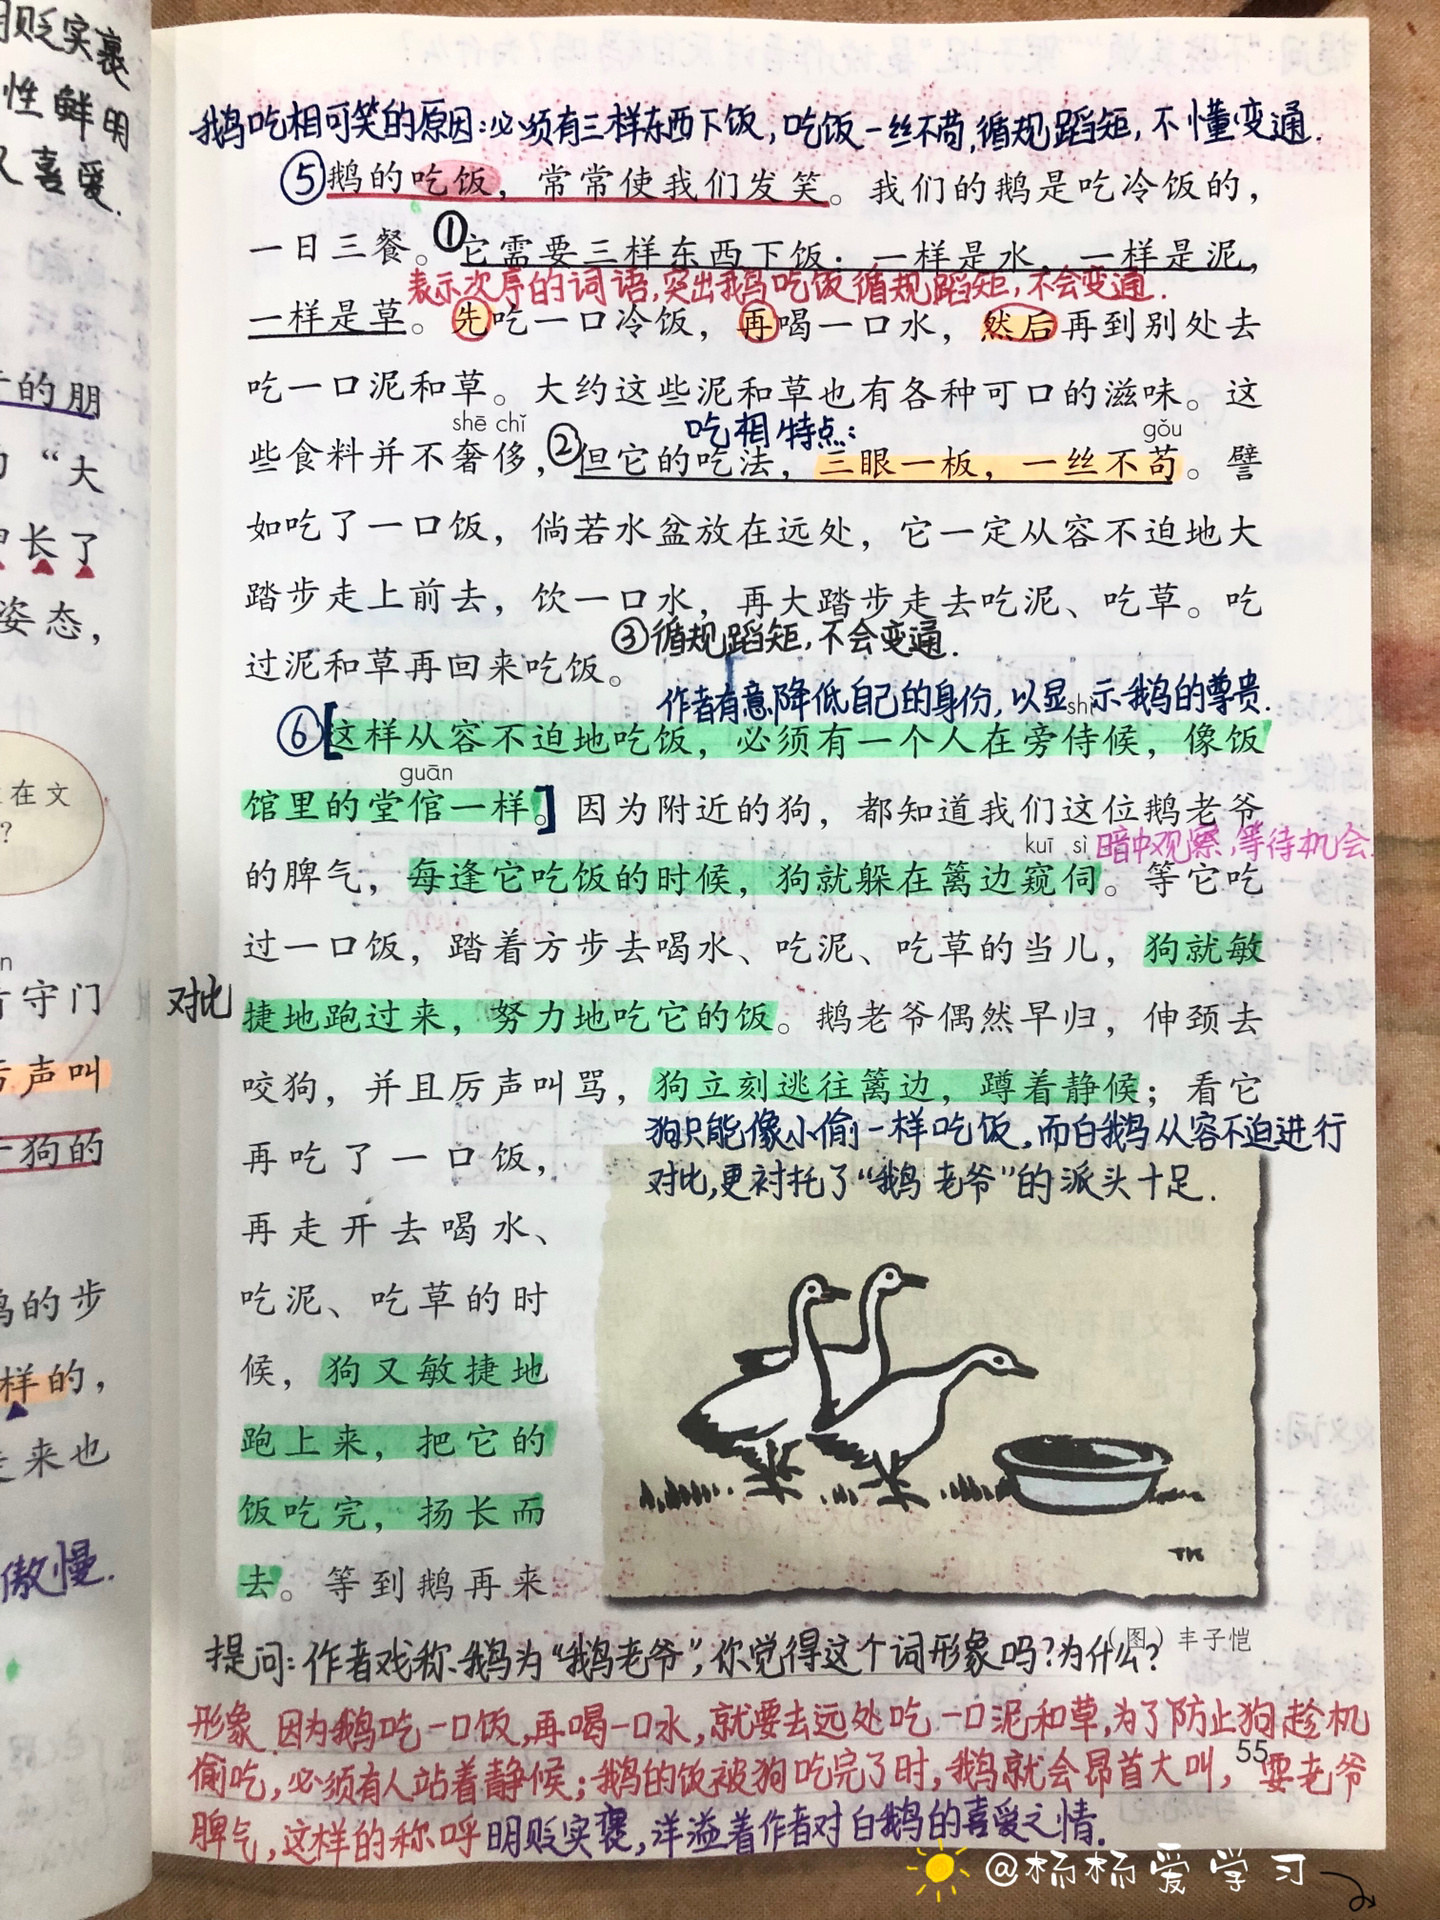 明贬实褒
性鲜明
又喜爱.
的朋
“大
长了
姿态，
在文
？
n
守门
声叫
狗的
的步
样的，
来也
傲慢.
鹅吃相可笑的原因:必须有三样东西下饭,吃饭一丝不苟,循规蹈矩,不懂变通.
⑤鹅的吃饭，常常使我们发笑。我们的鹅是吃冷饭的，
一日三餐。①它需要三样东西下饭：一样是水，一样是泥，
表示次序的词语,突出鹅吃饭循规蹈矩,不会变通.
一样是草。先吃一口冷饭，再喝一口水，然后再到别处去
吃一口泥和草。大约这些泥和草也有各种可口的滋味。这
shē chǐ
吃相特点:
gǒu
些食料并不奢侈，②但它的吃法，三眼一板，一丝不苟。譬
如吃了一口饭，倘若水盆放在远处，它一定从容不迫地大
踏步走上前去，饮一口水，再大踏步走去吃泥、吃草。吃
③循规蹈矩,不会变通.
过泥和草再回来吃饭。
作者有意降低自己的身份,以显示鹅的尊贵.
shì
⑥[这样从容不迫地吃饭，必须有一个人在旁侍候，像饭
guān
馆里的堂倌一样。]因为附近的狗，都知道我们这位鹅老爷
kuī sì
暗中观察,等待机会.
的脾气，每逢它吃饭的时候，狗就躲在篱边窥伺。等它吃
过一口饭，踏着方步去喝水、吃泥、吃草的当儿，狗就敏
对比
捷地跑过来，努力地吃它的饭。鹅老爷偶然早归，伸颈去
咬狗，并且厉声叫骂，狗立刻逃往篱边，蹲着静候；看它
狗只能像小偷一样吃饭,而白鹅从容不迫进行
对比,更衬托了“鹅老爷”的派头十足.
再吃了一口饭，
再走开去喝水、
吃泥、吃草的时
候，狗又敏捷地
跑上来，把它的
饭吃完，扬长而
去。等到鹅再来
TK
（图）丰子恺
提问:作者戏称鹅为“鹅老爷”,你觉得这个词形象吗?为什么?
形象.因为鹅吃一口饭,再喝一口水,就要去远处吃一口泥和草,为了防止狗趁机
55
偷吃,必须有人站着静候;鹅的饭被狗吃完了时,鹅就会昂首大叫,耍老爷
脾气,这样的称呼明贬实褒,洋溢着作者对白鹅的喜爱之情.
@杨杨爱学习